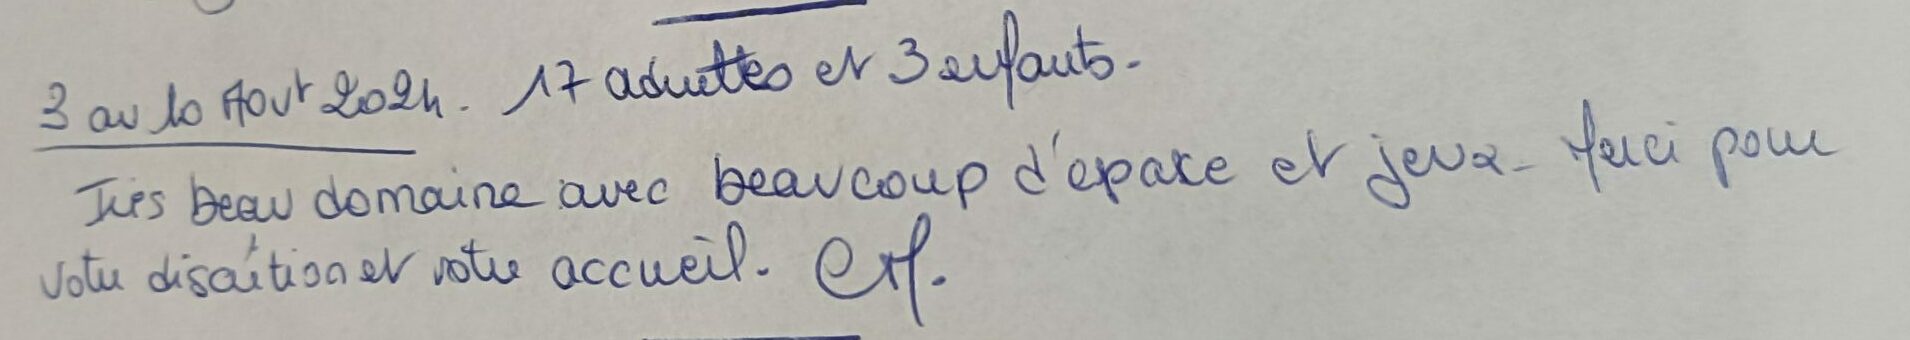 3 au 10 Aout 2024. 17 adultes et 3 enfants.
Très beau domaine avec beaucoup d'epace et jeux. Merci pour
votre discrétion et votre accueil. CM.